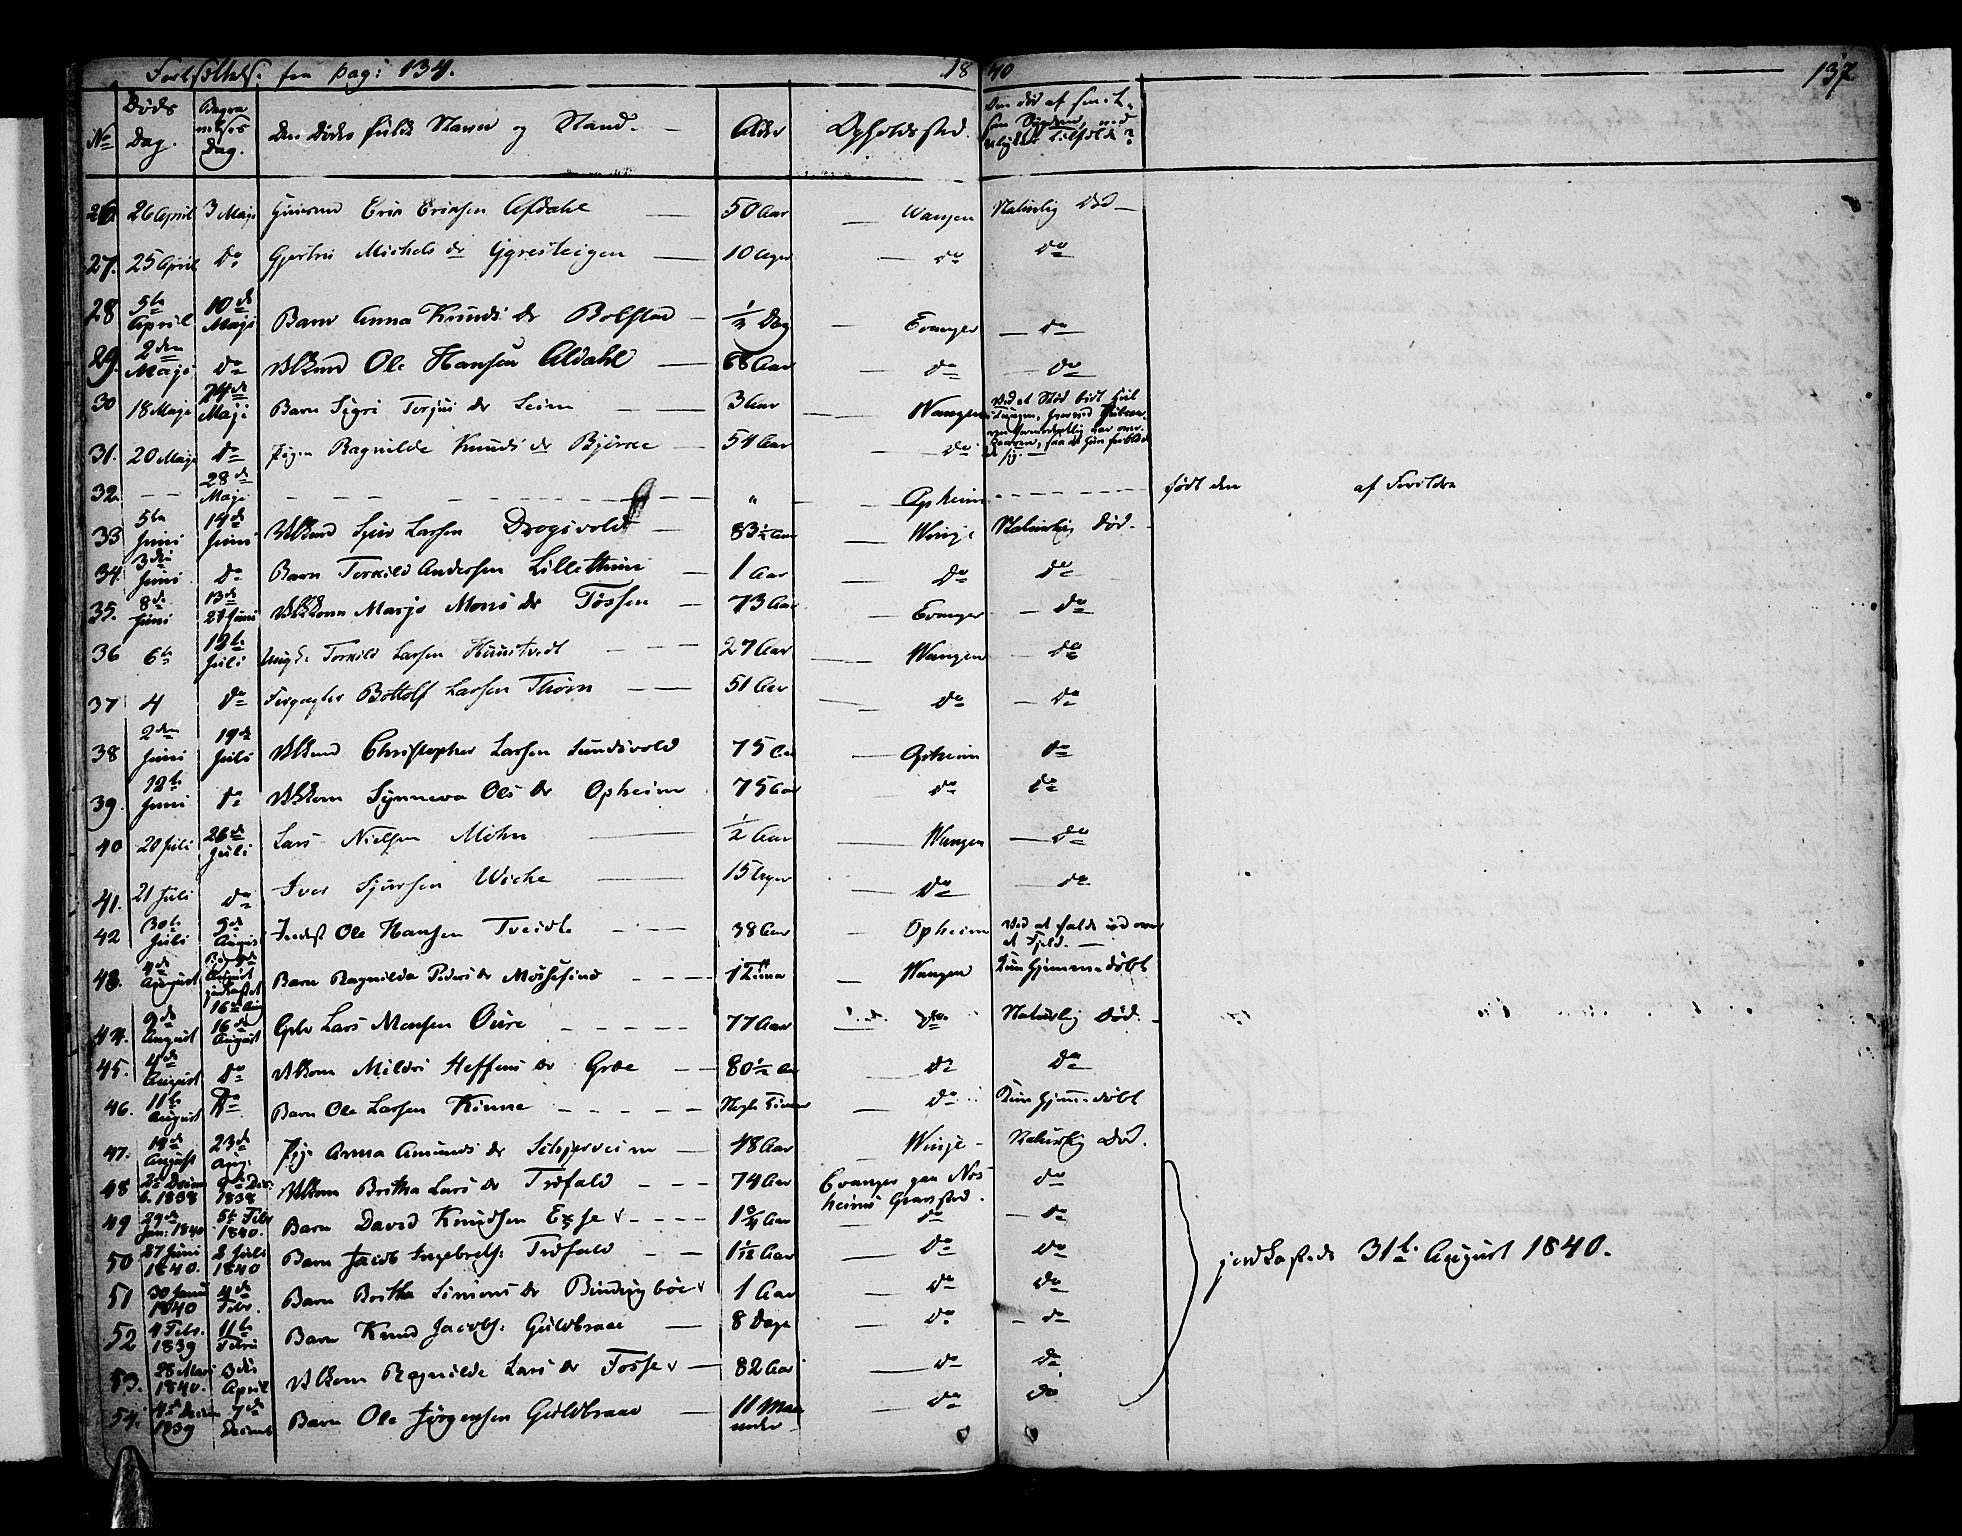 Fortsættelse fra pag: 134. 18 40 137
No Døds Dag. Begravelses Dag. Den Dødes fulde Navn og Stand. Alder Opholdssted. Den død af smitsom Sygdom, ved ulykkelig Tilfælde?
26 26 April 3 Maji Eric Ericsen Afdahl 50 Aar Wangen Naturlig Død
27. 25 April do Gjertru Michels dr Ygresteigen 10 Uger do do
28 5te April 10de Maji Barn Anna Knuds dr Bolstad ½ Dag Evanger do
29. 2den Maji do Ole Hansen Aldahl 68 Aar do do
30 18 Maji 24de Maji Barn Sygri Torjus dr Seim 3 Aar Wangen
31. 20 Maji do Pigen Ragnilde Knuds dr Bjørke 54 Aar do
32. 28de Maji " Opheim født den af Foreldre
33 5te Juni 14de Juni Sjur Larsen Drogsvold 83½ Aar Winje Naturlig Død
34. 3die Juni do Barn Torkild Andersen Lillethun 1 Aar do do
35. 8de Juni 13de Marjo Mons dr Fossen 73 Aar Evanger do
36 6te 12te Juli Torkild Larsen 27 Aar Wangen do
37 4 do Bottolf Larsen 51 Aar do do
38 2den Juni 19de Juli Christopher Larsen Sundsvold 75 Aar Opheim do
39. 12te Juni do Synneva Ols dr Opheim 75 Aar do do
40 20 Juli 26de Juli Lars Nielsen Mohn ½ Aar Wangen do
41. 21 Juli do Iver Sjursen Wiche 15 Uger do do
42 30te Juli 9de August Inderst Ole Hansen Tveidte 38 Aar Opheim Ved at falde ud over et Fjeld.
43. 4de August jordkastet 16de Aug Barn Ragnilda Peders dr Mossefind 1 Time Wangen Kun hjemmedøbt
44. 9de August 16de August Lars Monsen Øvre 77 Aar do Naturlig Død
45. 4de August do Mildri Steffens dr Græe 80½ Aar do do
46. 11te August do Barn Ole Larsen Kinne Nogle Timer do Kun hjemmedøbt
47. 19de August 23de Aug: Pige Anna Amunds dr Schjerveim 48 Aar Winje Naturlig Død.
48 1838 1838 Britha Lars dr Trefald 74 Aar Evanger paa Nosheims Gravsted. do
49 29de Jan: 1840 5te Febr 1840. Barn David Knudsen Exse v 1 Aar do do
50 27 Juni 1840. 2 Juli 1840 Barn Jacob Ingebrets: Trefald Aar do do
51 30 Janu 1840 4de Febr. Barn Britha Simons dr Bindingbøe v 1 Aar do do
52 4 Febr. 1839 11te Febr Barn Knud Jacobs: Guldbraae 8 Dage do do
53. 28 Mars 1840. 3die April Ragnilde Lars dr Fosse v 82 Aar do do
54. 1839 7de Decemb Barn Ole Jørgensen Guldbraae 11 Maaneder do do
jordkastede 31te August 1840.